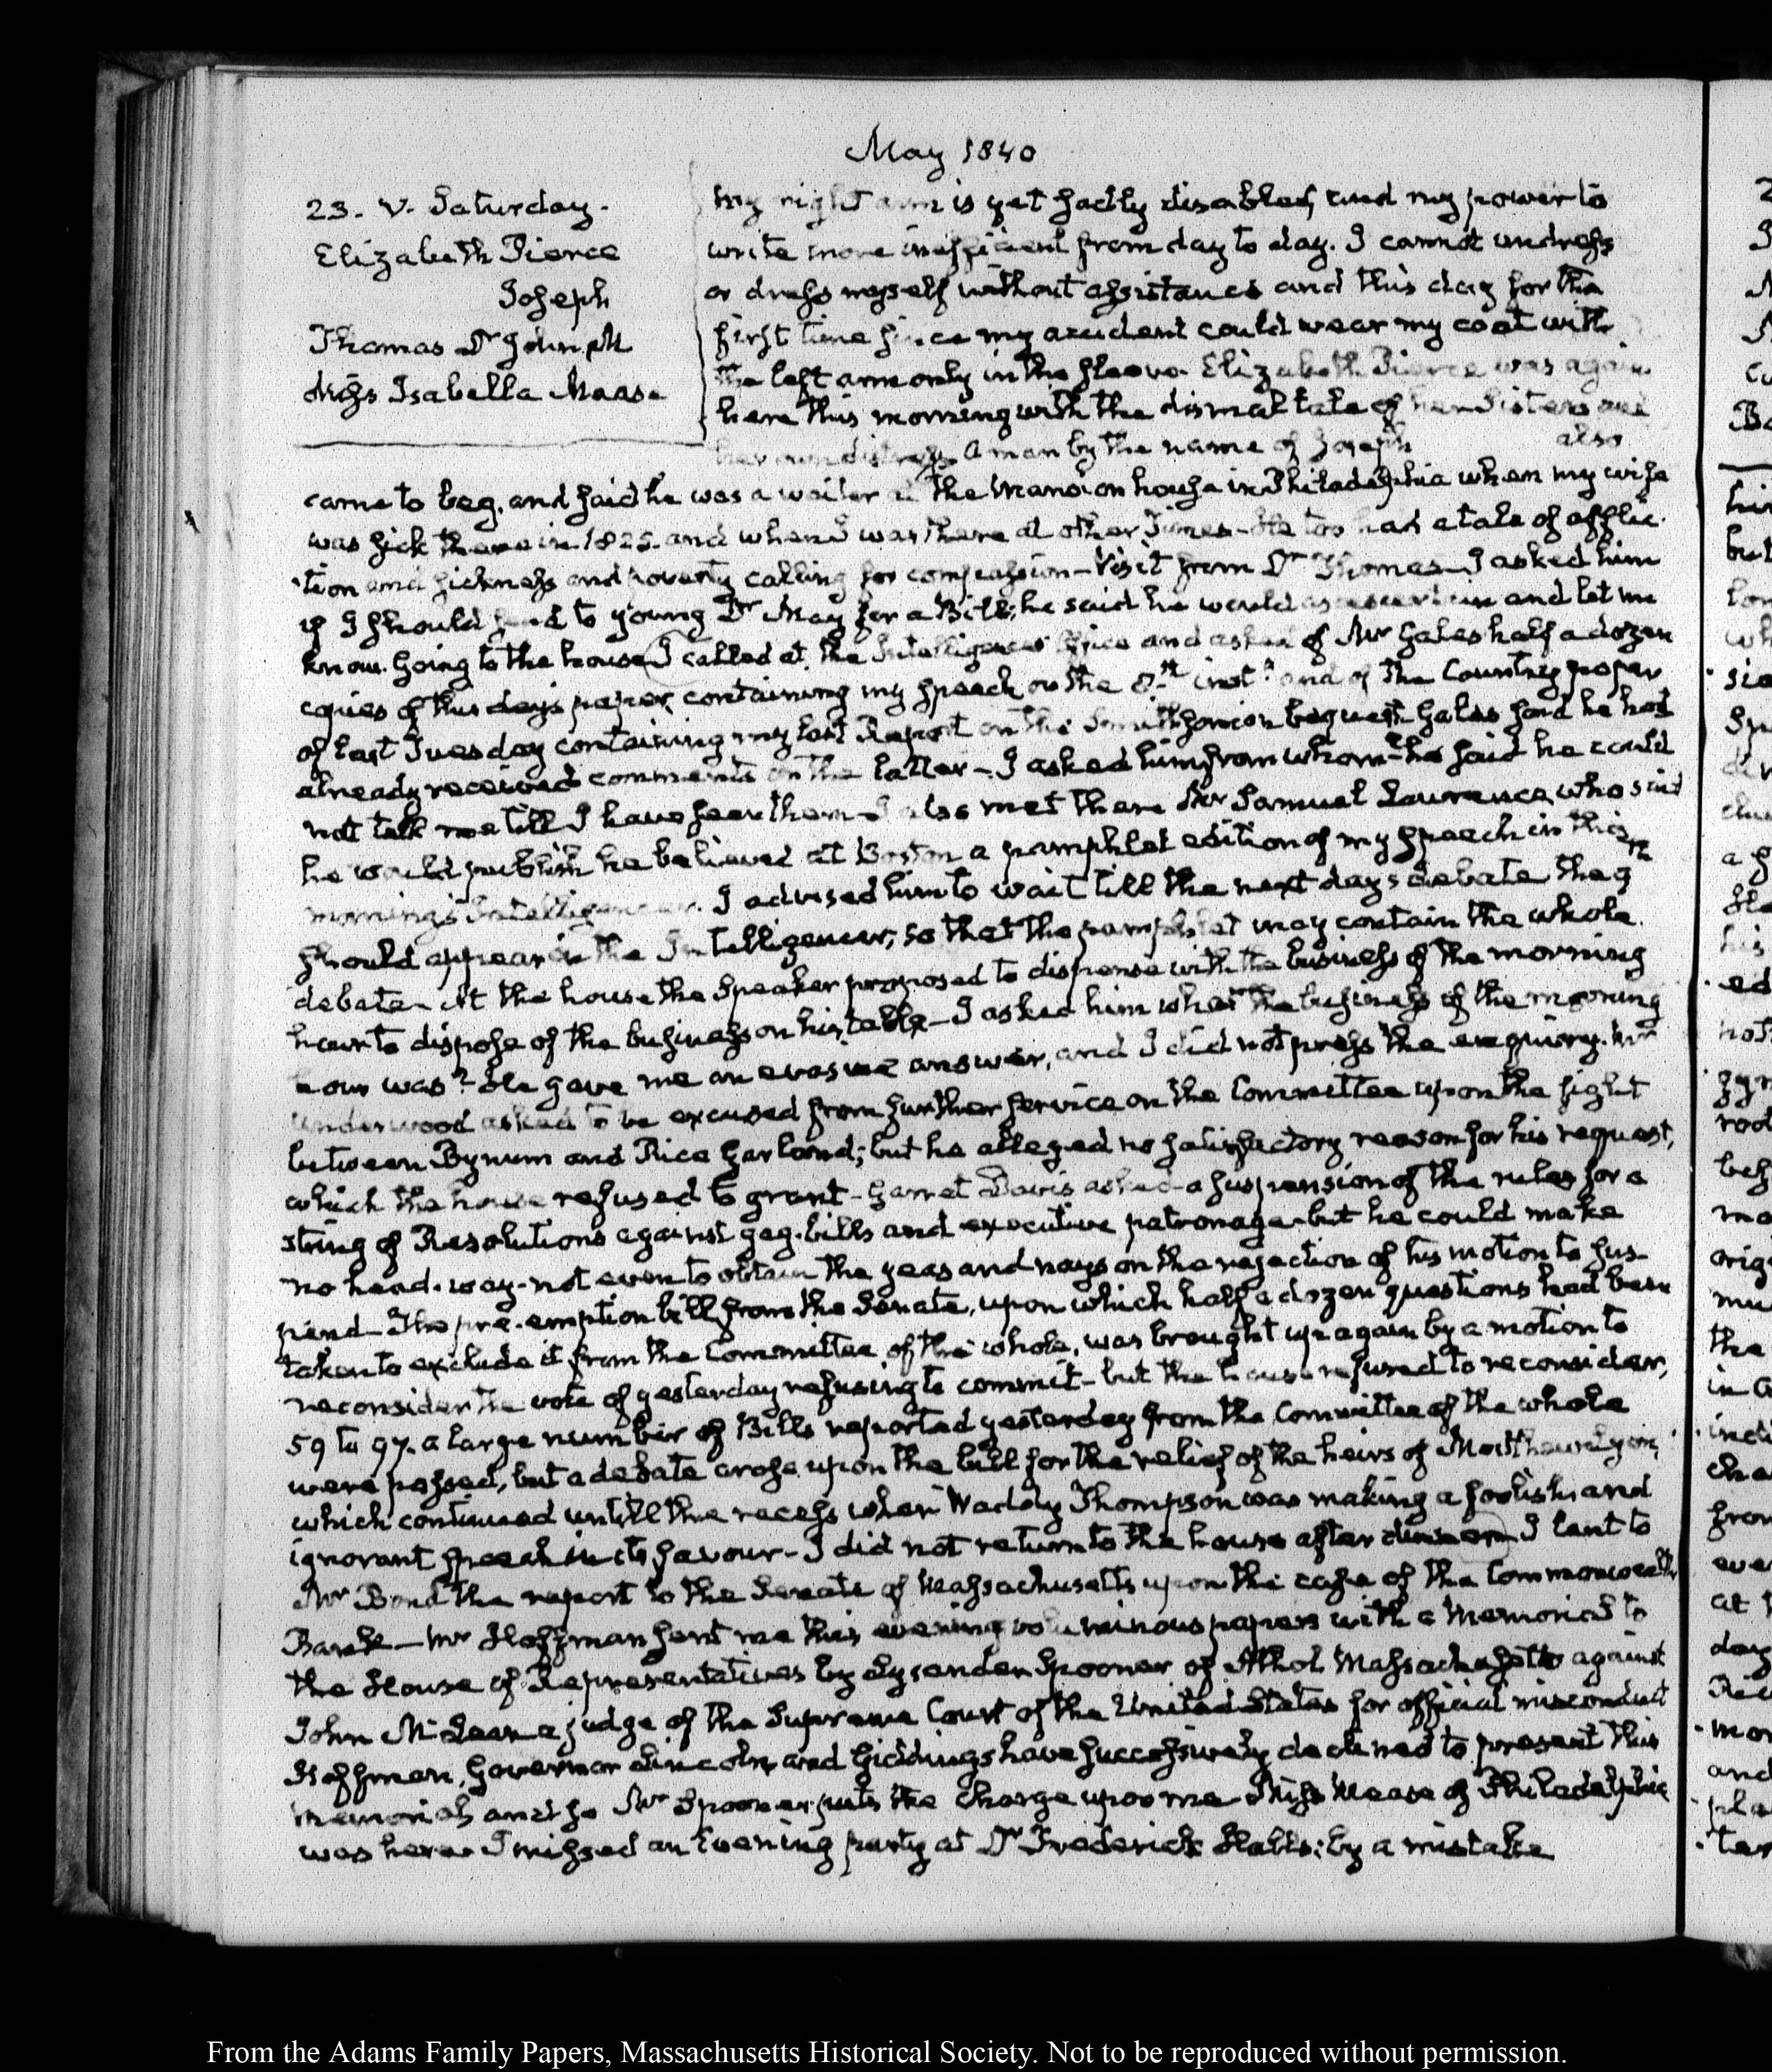 May 1840
23. V. Saturday.
Elizabeth Pierce
Joseph
Thomas Dr John M
Miss Isabella Mease
My right arm is yet sadly disabled, and my power to
write more inefficient from day to day. I cannot undress
or dress myself without assistance and this day for the
first time since my accident could wear my coat with
the left arm only in the sleeve. Elizabeth Pierce was again
here this morning with the dismal tale of her Sisters and
her own distress. A man by the name of Joseph also
came to beg, and said he was a waiter at the Mansion house in Philadelphia when my wife
was sick there in 1825. and when I was there at other Times - He too had a tale of afflic-
tion and sickness and poverty calling for compassion - Visit from Dr Thomas - I asked him
if I should send to young Dr May for a Bill; he said he would ascertain and let me
know. Going to the house I called at the Intelligencer Office and asked of Mr Gales half a dozen
copies of this day's paper, containing my speech on the 8th inst. and of the Country paper
of last Tuesday containing my last Report on the Smithsonian bequest. Gales said he had
already received comments on the latter - I asked him from whom - he said he could
not tell me till I have seen them - I also met there Mr Samuel Lawrence, who said
he would publish he believed at Boston a pamphlet edition of my Speech in this
morning's Intelligencer. I advised him to wait till the next days debate the 9th
should appear in the Intelligencer, so that the pamphlet may contain the whole
debate - At the house the Speaker proposed to dispense with the business of the morning
hour to dispose of the business on his table - I asked him what the business of the morning
hour was? He gave me an evasive answer, and I did not press the enquiry. Mr
Underwood asked to be excused from further service on the Committee upon the fight
between Bynum and Rice Garland; but he alleged no satisfactory reason for his request,
which the house refused to grant - Garret Davis asked a suspension of the rules for a
string of Resolutions against gag-bills and executive patronage - but he could make
no head-way - not even to obtain the yeas and nays on the rejection of his motion to sus-
pend - The pre-emption bill from the Senate, upon which half a dozen questions had been
taken to exclude it from the Committee of the whole, was brought up again by a motion to
reconsider the vote of yesterday refusing to commit - but the house refused to reconsider,
59 to 97. a large number of Bills reported yesterday from the Committee of the whole
were passed, but a debate arose upon the bill for the relief of the heirs of
which continued untill the recess when Waddy Thompson was making a foolish and
ignorant speech in its favour - I did not return to the house after dinner I sent to
Mr Bond the report to the Senate of Massachusetts upon the case of the Commonwealth
Bank - Mr Hoffman sent me this evening voluminous papers with a Memorial to
the House of Representatives by Lysander Spooner of Athol Massachusetts against
John McLean a judge of the Supreme Court of the United States for official misconduct
Hoffman, Governor Lincoln and Giddings have successively declined to present this
memorial and so Mr Spooner puts the charge upon me - Miss Mease of Philadelphia
was here. I missed an Evening party at Dr Frederick Hall's: by a mistake
From the Adams Family Papers, Massachusetts Historical Society. Not to be reproduced without permission.